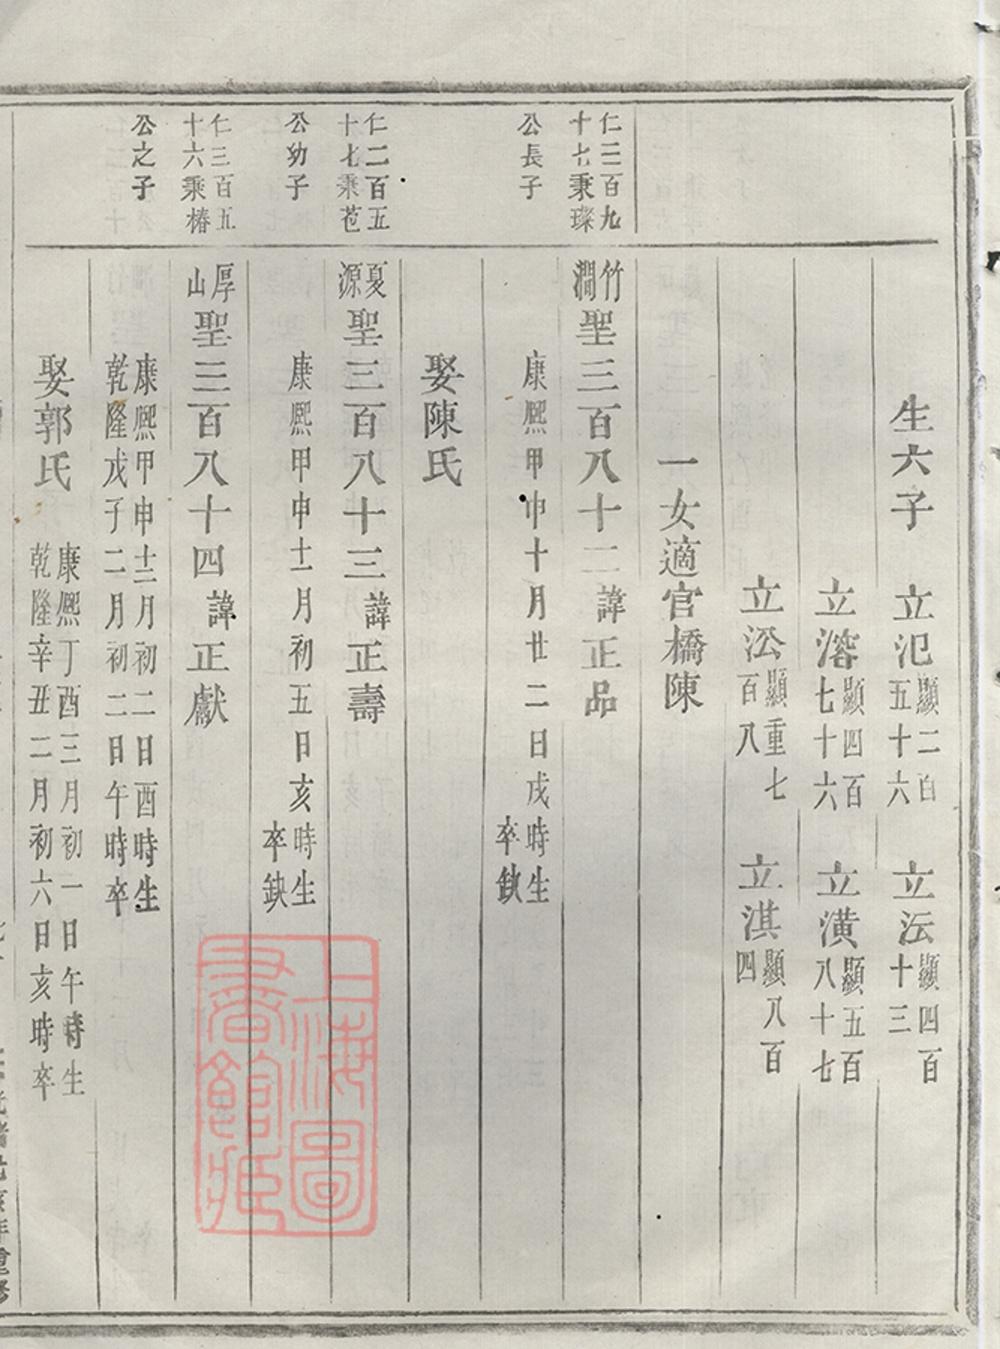 生六子 立氾顯二百五十六 立沄顯四百十三
立溶顯四百七十六 立潢顯五百八十七
立㳂顯重七百八 立淇顯八百四
一女適官橋陳
仁三百九十七秉璨公長子
竹澗聖三百八十二諱正品
康熙甲申十月廿二日戌時生卒缺
娶陳氏
仁二百五十七秉苞公幼子
夏源聖三百八十三諱正壽
康熙甲申十一月初五日亥時生卒缺
仁三百五十六乘椿公之子
厚山聖三百八十四諱正獻
康熙甲申十二月初二日酉時生
乾隆戊子二月初二日午時卒
娶郭氏 康熙丁酉三月初一日午時生
乾隆辛丑二月初六日亥時卒
年重修
上海圖書館藏